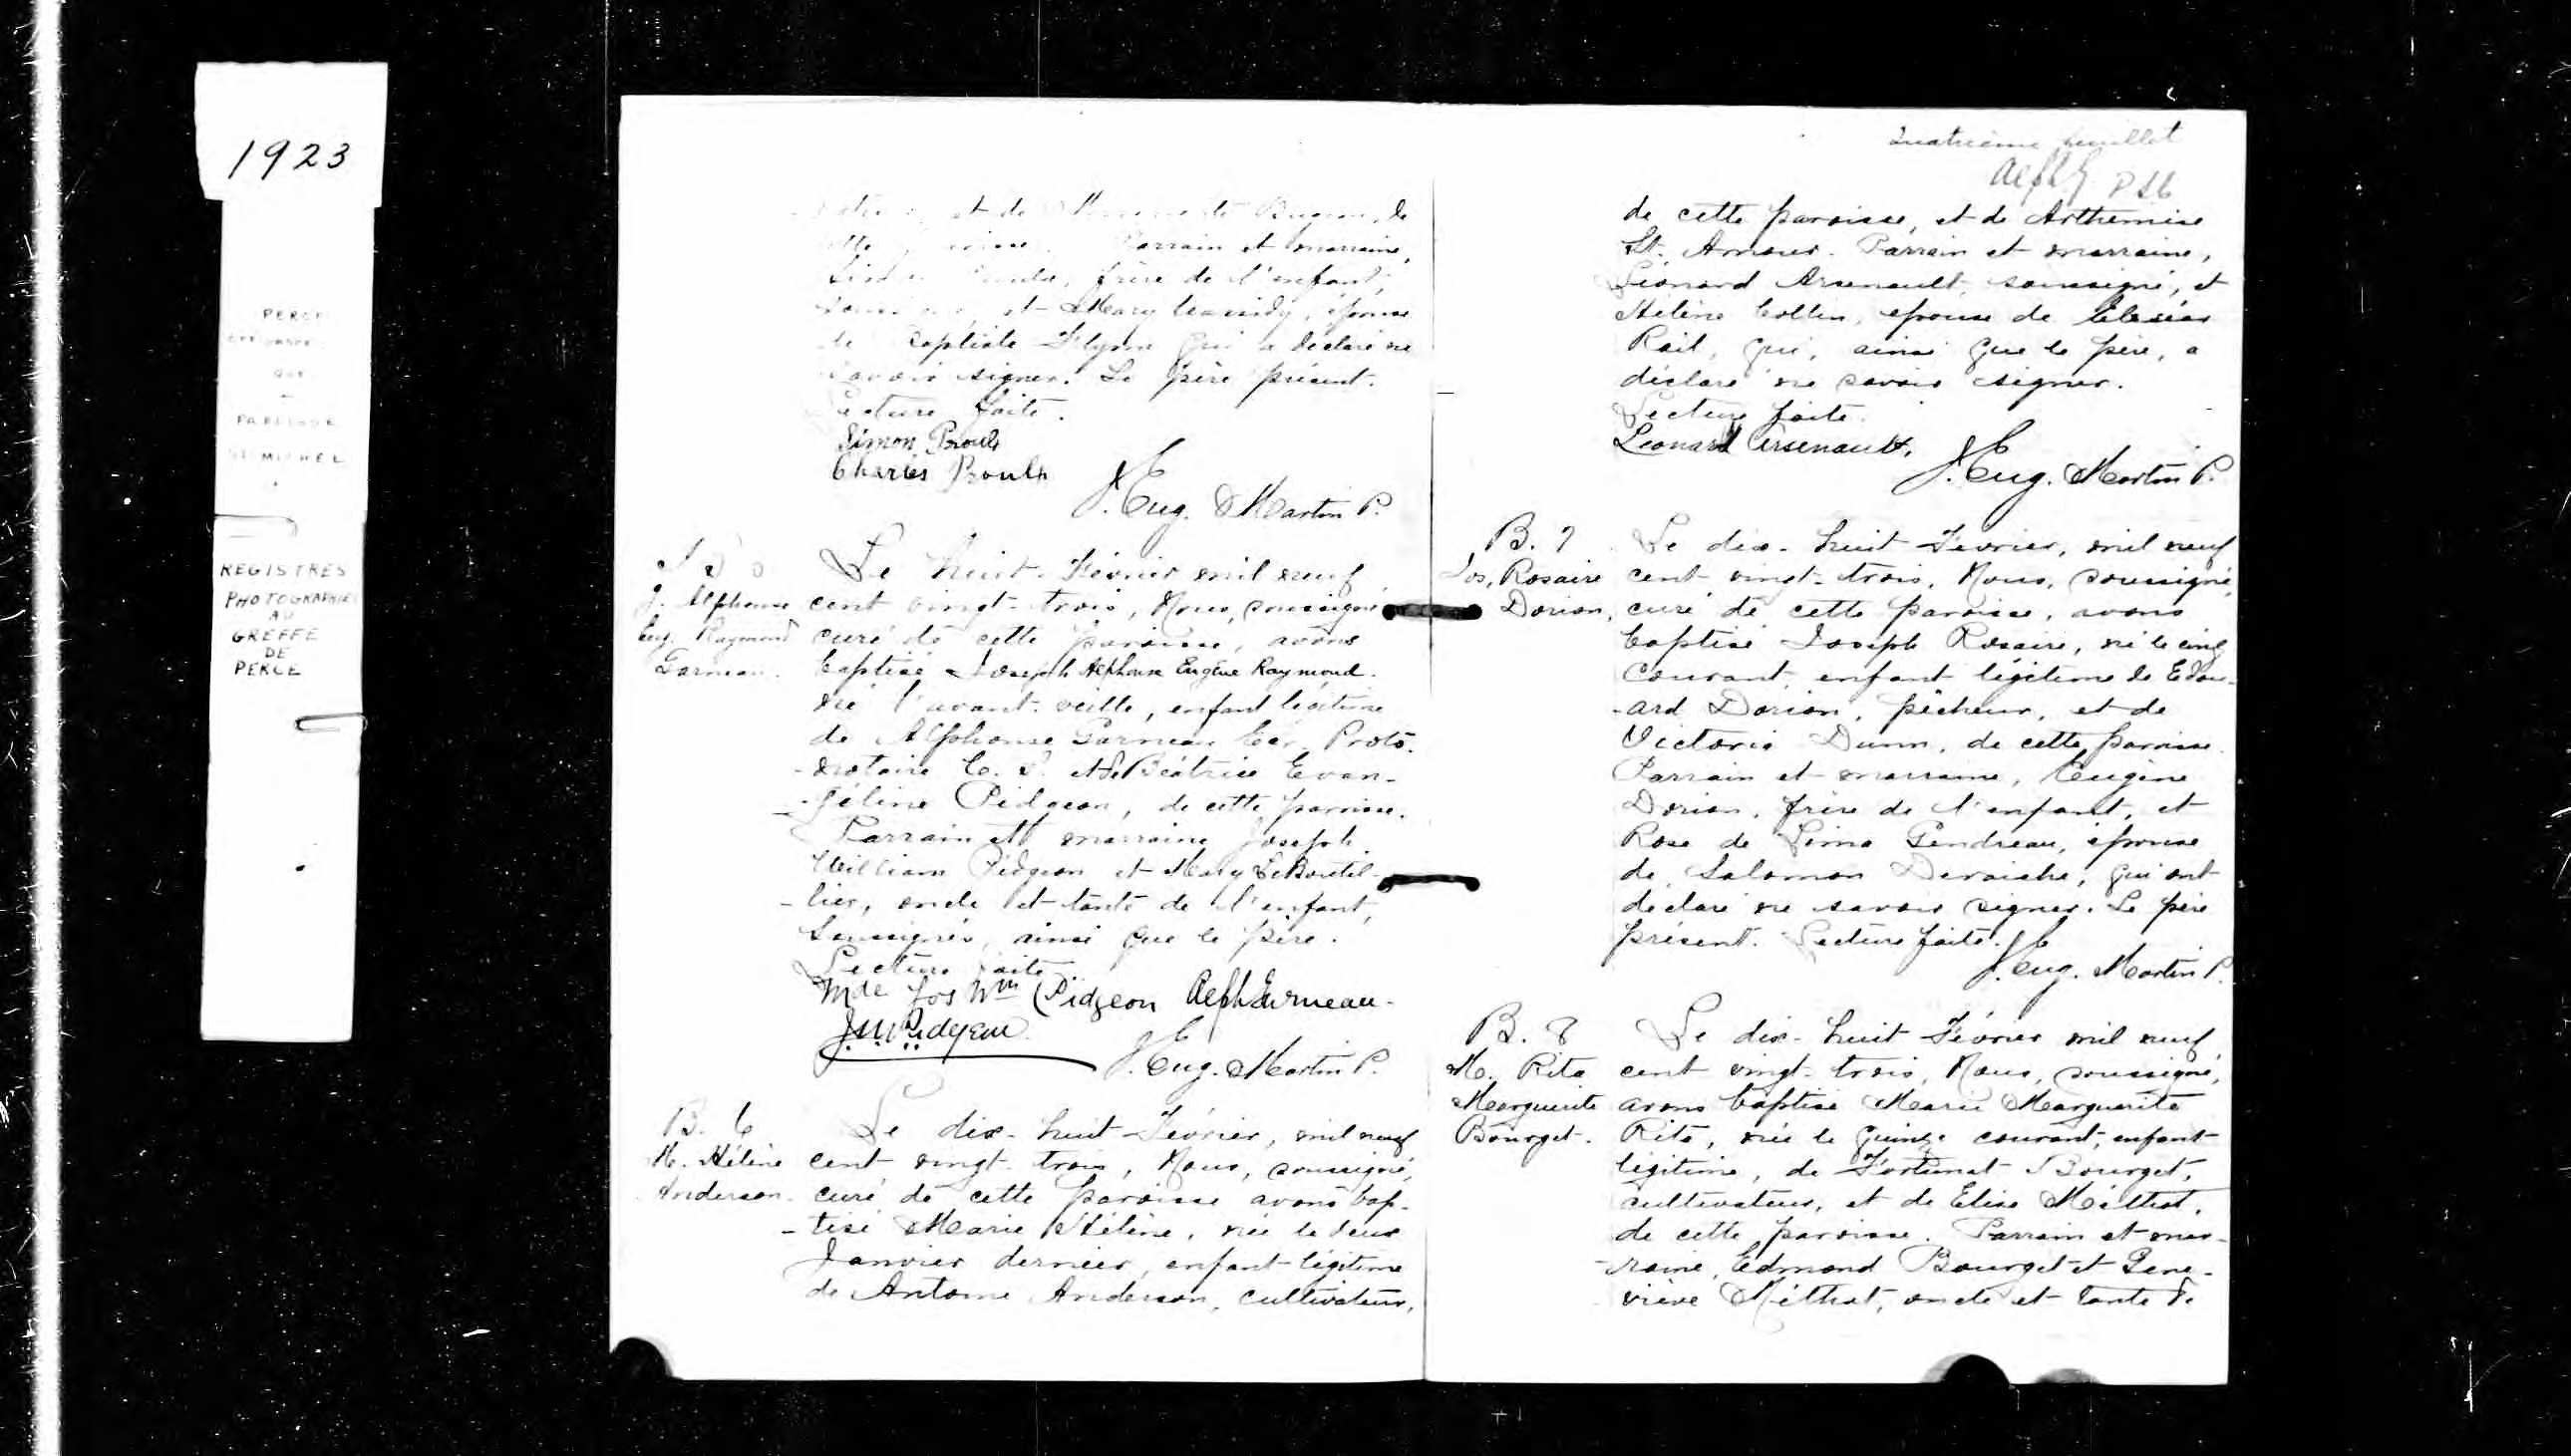 1923
PERCÉ
PAROISSE
ST MICHEL
REGISTRES
PHOTOGRAPHIÉS
AU
GREFFE
DE
PERCE
et de
Parrain et marraine,
frère de l'enfant,
et Mary Cassidy, épouse
de Baptiste Flynn qui a déclaré ne
savoir signer. Le père présent.
Lecture faite.
Simon Proulx
Charles Proulx
J. Eug. Martin P.
J. Alphonse
Eug. Raymond
Garneau.
Le huit Février mil neuf
cent vingt-trois, Nous, soussigné
curé de cette paroisse, avons
baptisé Joseph Alphonse Eugène Raymond
né l'avant-veille, enfant légitime
de Alphonse Garneau Ecr. Proto-
-notaire C. S. et de Béatrice Evan-
-géline Pidgeon, de cette paroisse.
Parrain et marraine Joseph
William Pidgeon et Mary LeBoutil-
-lier, oncle et tante de l'enfant,
soussignés, ainsi que le père.
Lecture faite.
Mde Jos Wm Pidgeon Alph Garneau
J. W. Pidgeon
J. Eug. Martin P.
B. 6
M. Hélène
Anderson.
Le dix-huit Février, mil neuf
cent vingt-trois, Nous, soussigné,
curé de cette paroisse avons bap-
-tisé Marie Hélène, née le deux
Janvier dernier, enfant légitime
de Antoine Anderson, cultivateur,
Quatrième feuillet
de cette paroisse, et de Arthémise
St. Amour. Parrain et marraine,
Léonard Arsenault, soussigné, et
Hélène Collin, épouse de
Rail, qui, ainsi que le père, a
déclaré ne savoir signer.
Lecture faite.
Leonard Arsenault,
J. Eug. Martin P.
B. 7
Jos, Rosaire
Dorion,
Le dix-huit Février, mil neuf
cent vingt-trois, Nous, soussigné,
curé de cette paroisse, avons
baptisé Joseph Rosaire, né le cinq
courant, enfant légitime de Edou-
-ard Dorion, pêcheur, et de
Victoria Dunn, de cette paroisse.
Parrain et marraine, Eugène
Dorion, frère de l'enfant, et
Rose de Lima Gendreau, épouse
de Salomon Deraiche, qui ont
déclaré ne savoir signer. Le père
présent. Lecture faite.
J. Eug. Martin P.
B. 8
M. Rita
Marguerite
Bourget.
Le dix-huit Février mil neuf
cent vingt-trois, Nous, soussigné,
avons baptisé Marie Marguerite
Rita, née le quinze courant, enfant
légitime, de Fortunat Bourget,
cultivateur, et de Elisa Méthot,
de cette paroisse. Parrain et mar-
-raine, Edmond Bourget et Gene-
-viève Méthot, oncle et tante de